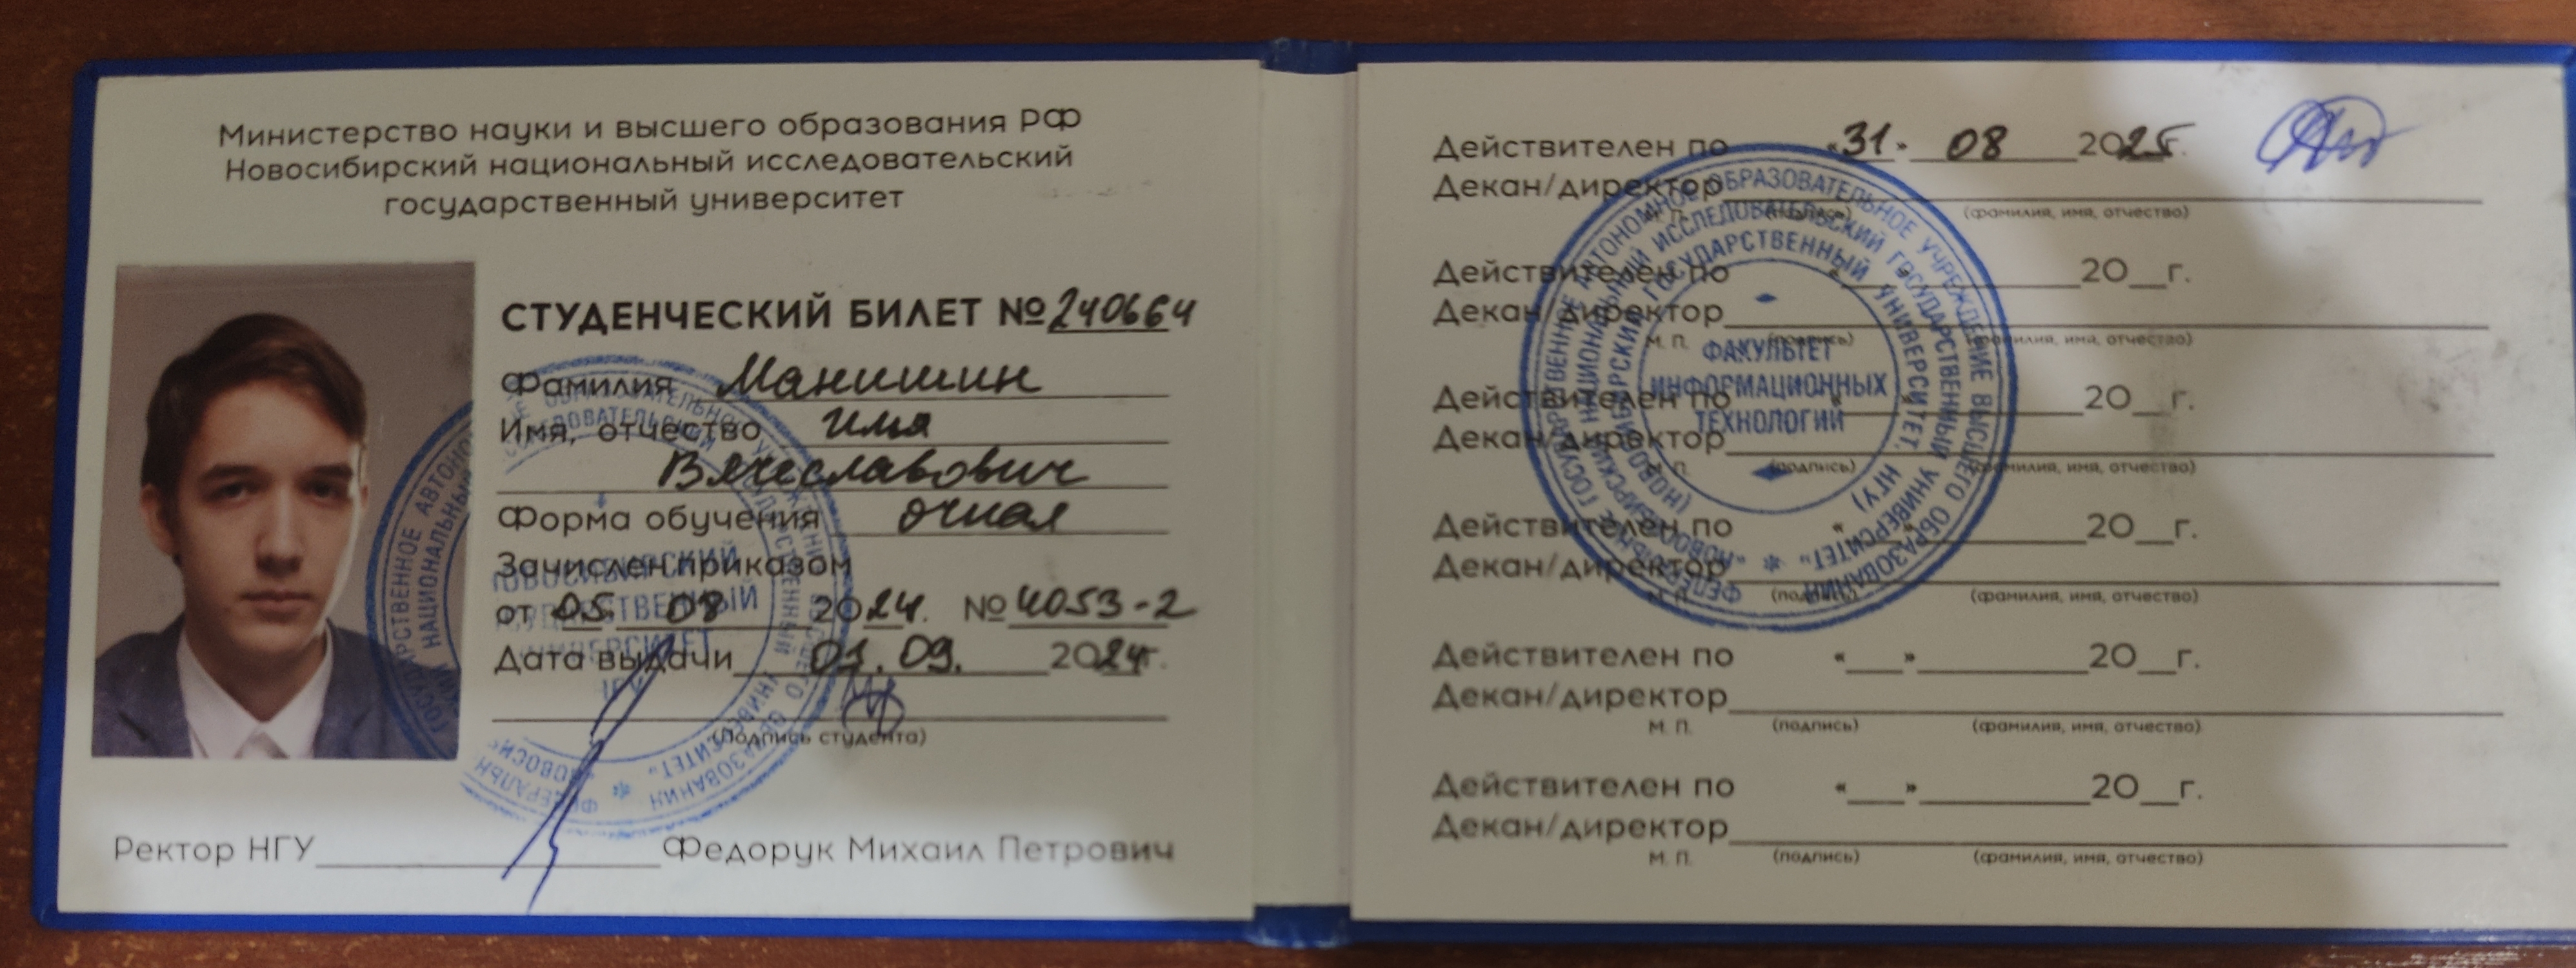 Министерство науки и высшего образования РФ
Новосибирский национальный исследовательский
государственный университет
СТУДЕНЧЕСКИЙ БИЛЕТ № 240664
Фамилия Манишин
Имя, отчество Илья
Вячеславович
Форма обучения очная
Зачислен приказом
от 05 08 2024. № 4053-2
Дата выдачи 01.09. 2024г.
(Подпись студента)
Ректор НГУ Федорук Михаил Петрович
Действителен по «31» 08 2025г.
Декан/директор
М. П. (подпись) (фамилия, имя, отчество)
Действителен по « » 20 г.
Декан/директор
М. П. (подпись) (фамилия, имя, отчество)
Действителен по « » 20 г.
Декан/директор
М. П. (подпись) (фамилия, имя, отчество)
Действителен по « » 20 г.
Декан/директор
М. П. (подпись) (фамилия, имя, отчество)
Действителен по « » 20 г.
Декан/директор
М. П. (подпись) (фамилия, имя, отчество)
Действителен по « » 20 г.
Декан/директор
М. П. (подпись) (фамилия, имя, отчество)
АВТОНОМНОЕ ОБРАЗОВАТЕЛЬНОЕ УЧРЕЖДЕНИЕ ВЫСШЕГО ОБРАЗОВАНИЯ
НАЦИОНАЛЬНЫЙ ИССЛЕДОВАТЕЛЬСКИЙ ГОСУДАРСТВЕННЫЙ УНИВЕРСИТЕТ"
(НОВОСИБИРСКИЙ ГОСУДАРСТВЕННЫЙ УНИВЕРСИТЕТ, НГУ)
ФАКУЛЬТЕТ
ИНФОРМАЦИОННЫХ
ТЕХНОЛОГИЙ